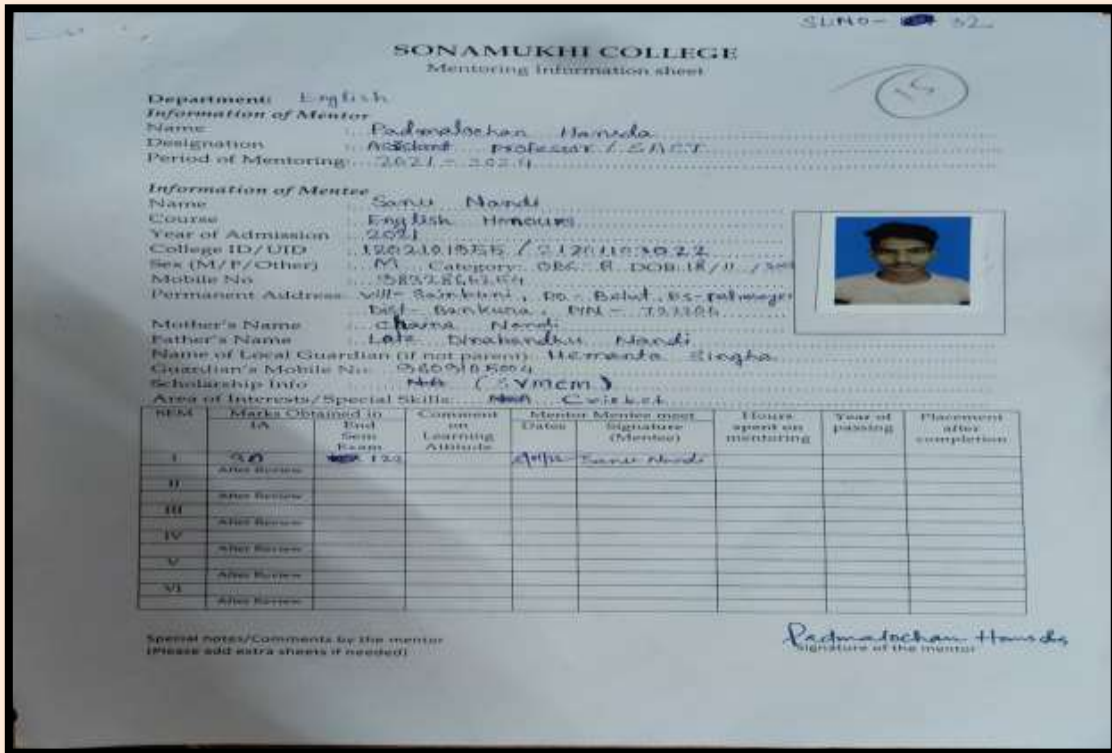 SLNO- 32
SONAMUKHI COLLEGE
Mentoring Information sheet
Department: English
Information of Mentor
Name : Padmalochan Hansda
Designation : Assistant Professor / SACT
Period of Mentoring: 2021 - 2024
Information of Mentee
Name : Sanu Nandi
Course : English Honours
Year of Admission : 2021
College ID/UID
Sex (M/F/Other) : M Category: OBC-B DOB: 18/11/
Mobile No
Permanent Address: Vill- PO- Belut, PS-
Dist- Bankura, PIN -
Mother's Name : Nandi
Father's Name : Late Dinabandhu Nandi
Name of Local Guardian (if not parent): Hemanta Singha
Guardian's Mobile No:
Scholarship Info : NA (SVMCM)
Area of Interests/Special Skills: Cricket
SEM Marks Obtained in Comment on Learning Attitude Mentor Mentee meet Hours spent on mentoring Year of passing Placement after completion
IA End Sem Exam Dates Signature (Mentee)
I 122 Sanu Nandi
After Review
II
After Review
III
After Review
IV
After Review
V
After Review
VI
After Review
Special notes/Comments by the mentor
(Please add extra sheets if needed)
Padmalochan Hansda
Signature of the mentor